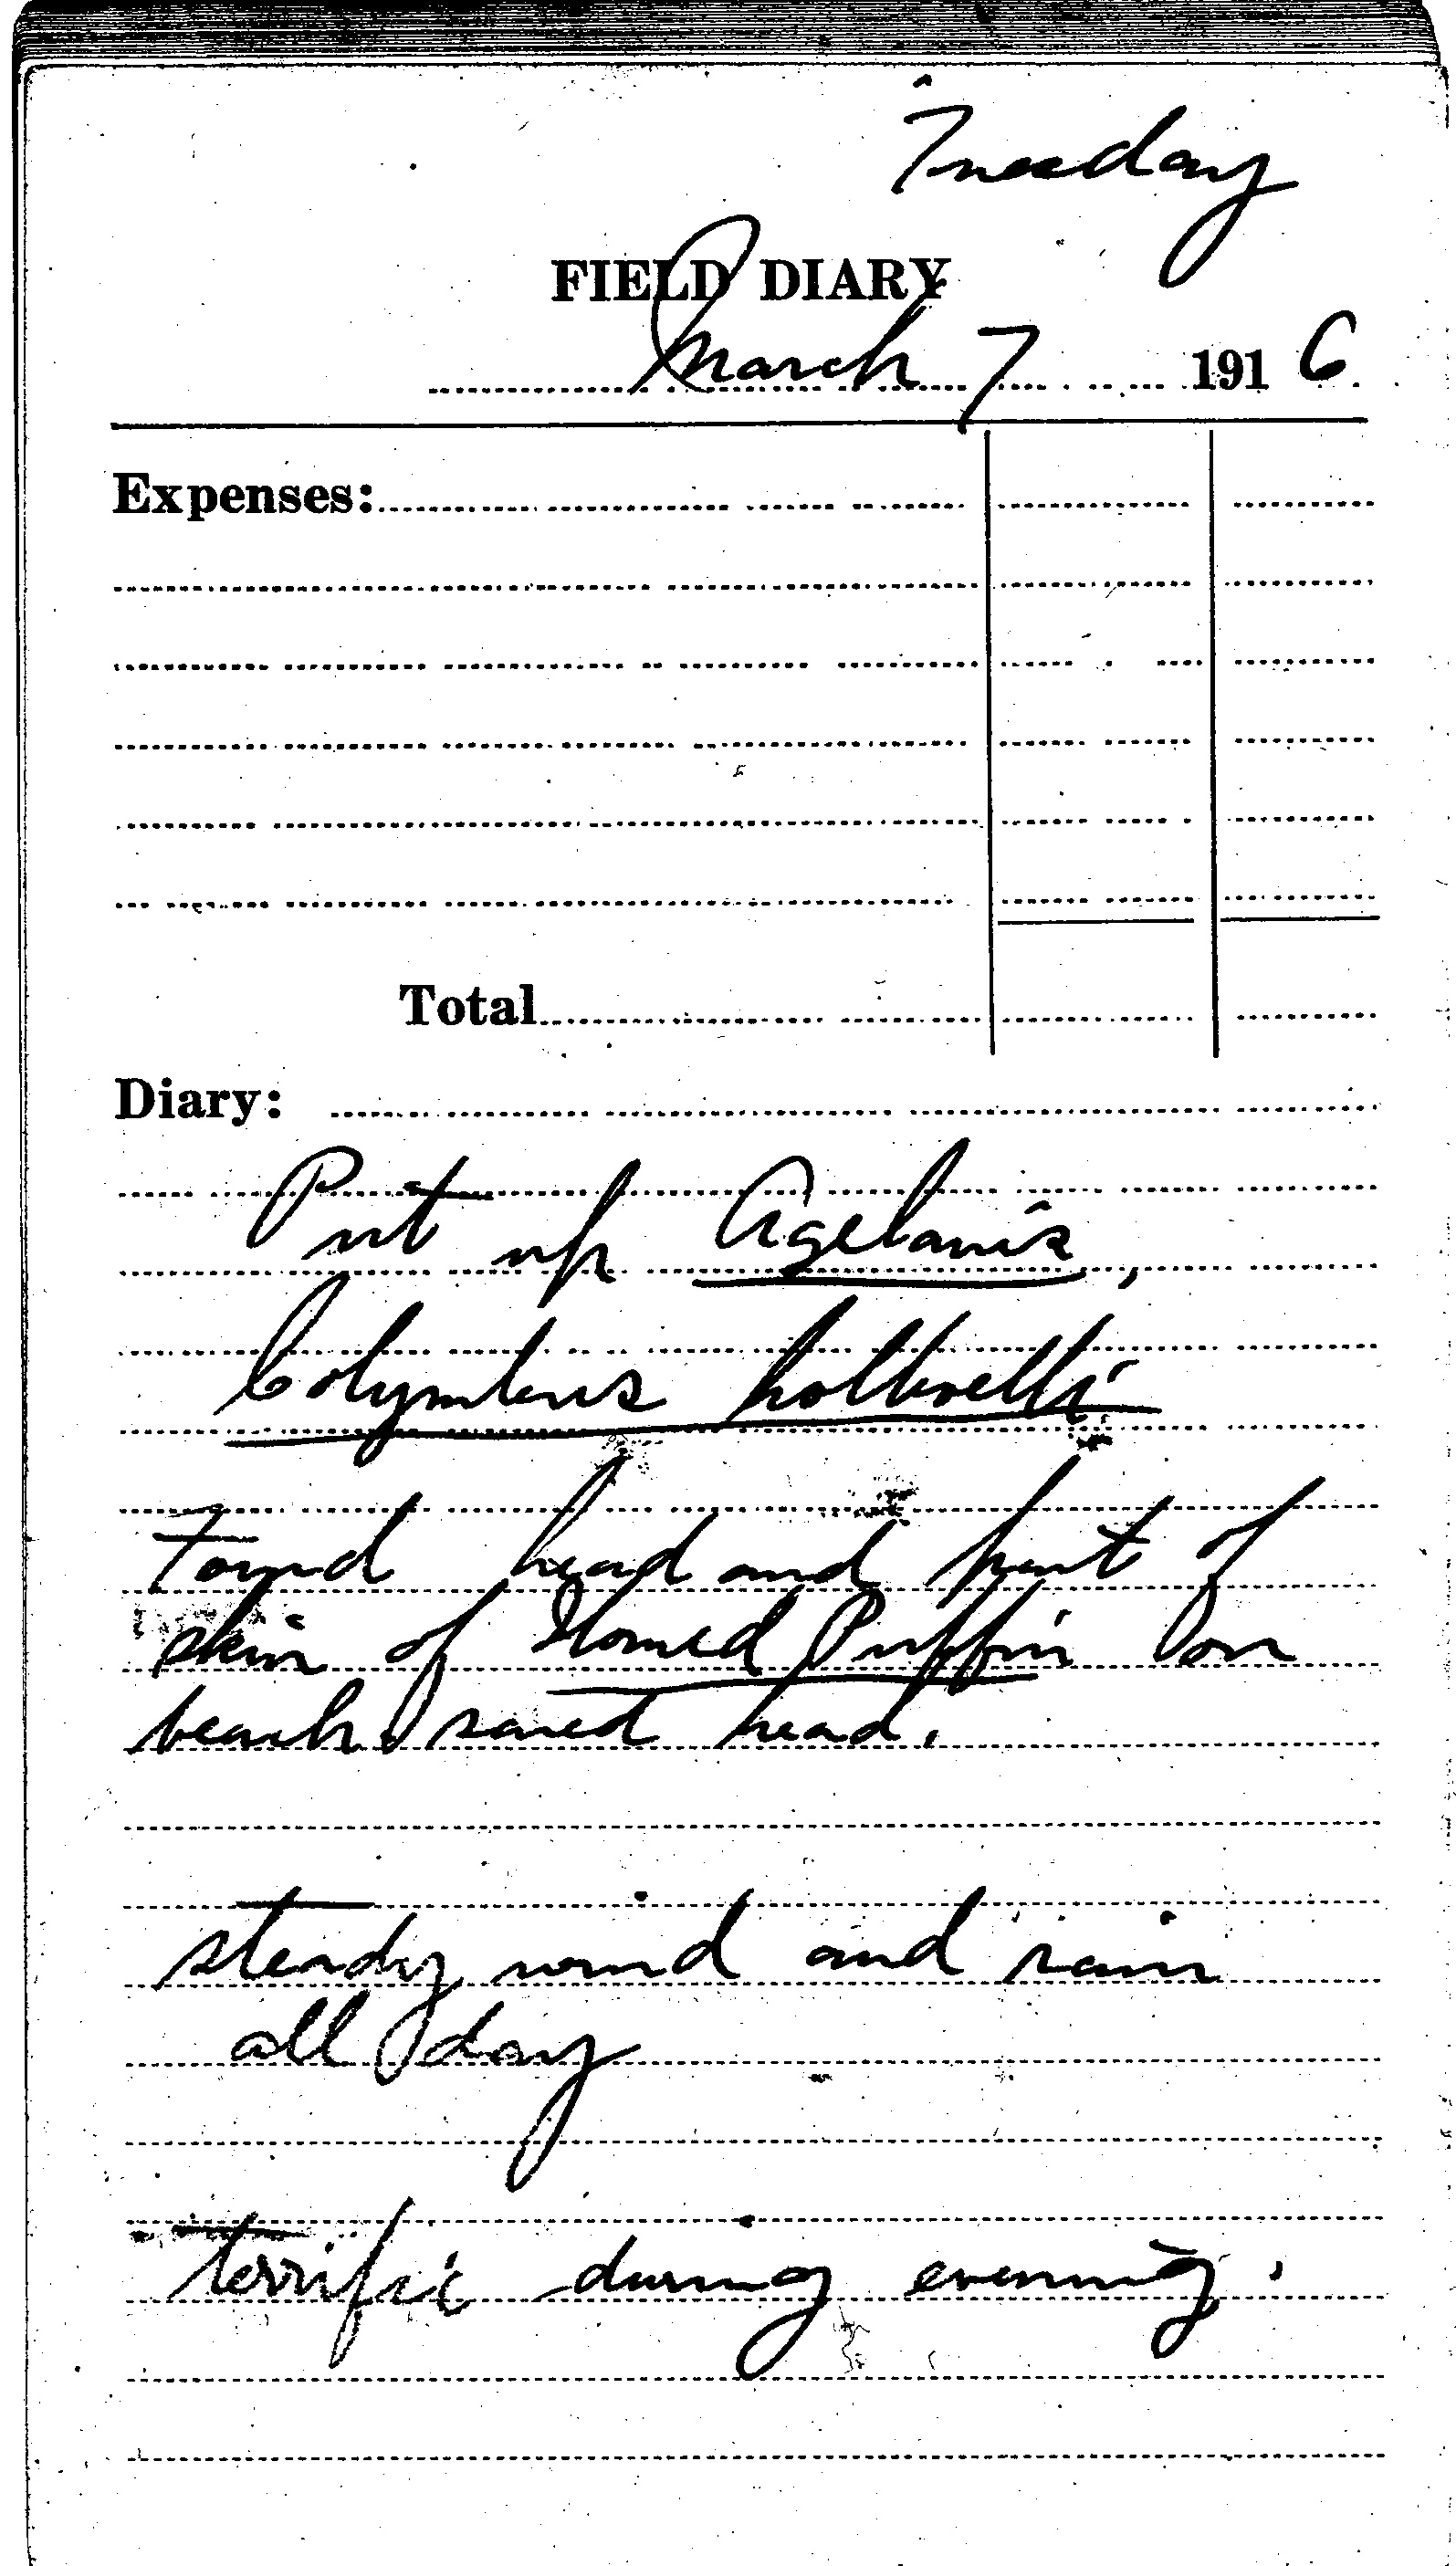 Tuesday
FIELD DIARY
March 7 1916
Expenses:
Total
Diary:
Put up Agelaius,
Colymbus holboelli
Found head and part of
skin of Horned Puffin on
beach. saved head.
steady wind and rain
all day
terrific during evening.